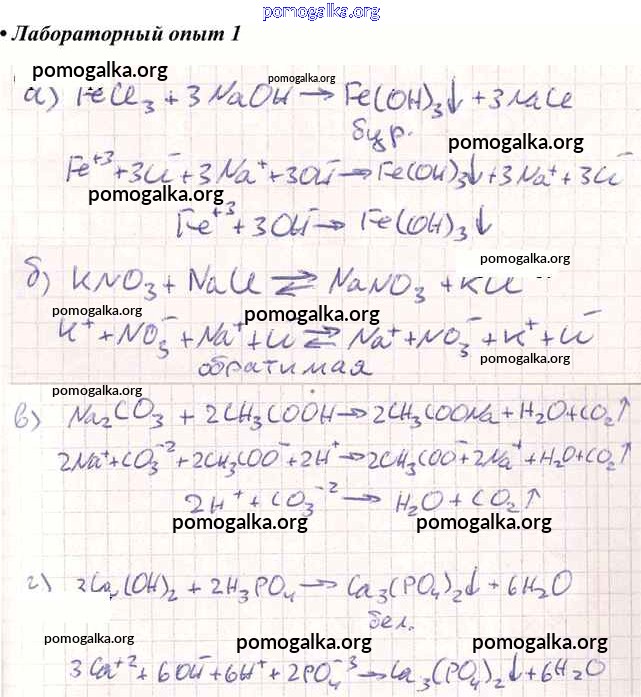 pomogalka.org
• Лабораторный опыт 1
pomogalka.org pomogalka.org
а) FeCl₃ + 3NaOH → Fe(OH)₃↓ + 3NaCl
бур. pomogalka.org
Fe⁺³ + 3Cl⁻ + 3Na⁺ + 3OH⁻ → Fe(OH)₃↓ + 3Na⁺ + 3Cl⁻
pomogalka.org
Fe⁺³ + 3OH⁻ → Fe(OH)₃↓
pomogalka.org
б) KNO₃ + NaCl ⇄ NaNO₃ + KCl
pomogalka.org pomogalka.org
K⁺ + NO₃⁻ + Na⁺ + Cl⁻ ⇄ Na⁺ + NO₃⁻ + K⁺ + Cl⁻
обратимая pomogalka.org
pomogalka.org
в) Na₂CO₃ + 2CH₃COOH → 2CH₃COONa + H₂O + CO₂↑
2Na⁺ + CO₃⁻² + 2CH₃COO⁻ + 2H⁺ → 2CH₃COO⁻ + 2Na⁺ + H₂O + CO₂↑
2H⁺ + CO₃⁻² → H₂O + CO₂↑
pomogalka.org pomogalka.org
г) 3Ca(OH)₂ + 2H₃PO₄ → Ca₃(PO₄)₂↓ + 6H₂O
бел.
pomogalka.org pomogalka.org pomogalka.org
3Ca⁺² + 6OH⁻ + 6H⁺ + 2PO₄⁻³ → Ca₃(PO₄)₂↓ + 6H₂O